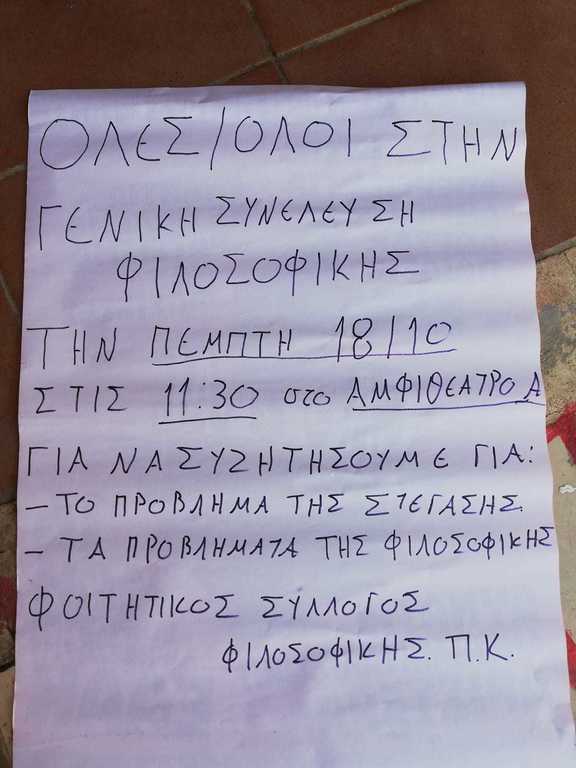 ΟΛΕΣ/ΟΛΟΙ ΣΤΗΝ
ΓΕΝΙΚΗ ΣΥΝΕΛΕΥΣΗ
ΦΙΛΟΣΟΦΙΚΗΣ
ΤΗΝ ΠΕΜΠΤΗ 18/10
ΣΤΙΣ 11:30 στο ΑΜΦΙΘΕΑΤΡΟ Α
ΓΙΑ ΝΑ ΣΥΖΗΤΗΣΟΥΜΕ ΓΙΑ:
- ΤΟ ΠΡΟΒΛΗΜΑ ΤΗΣ ΣΤΕΓΑΣΗΣ.
- ΤΑ ΠΡΟΒΛΗΜΑΤΑ ΤΗΣ ΦΙΛΟΣΟΦΙΚΗΣ
ΦΟΙΤΗΤΙΚΟΣ ΣΥΛΛΟΓΟΣ
ΦΙΛΟΣΟΦΙΚΗΣ. Π.Κ.